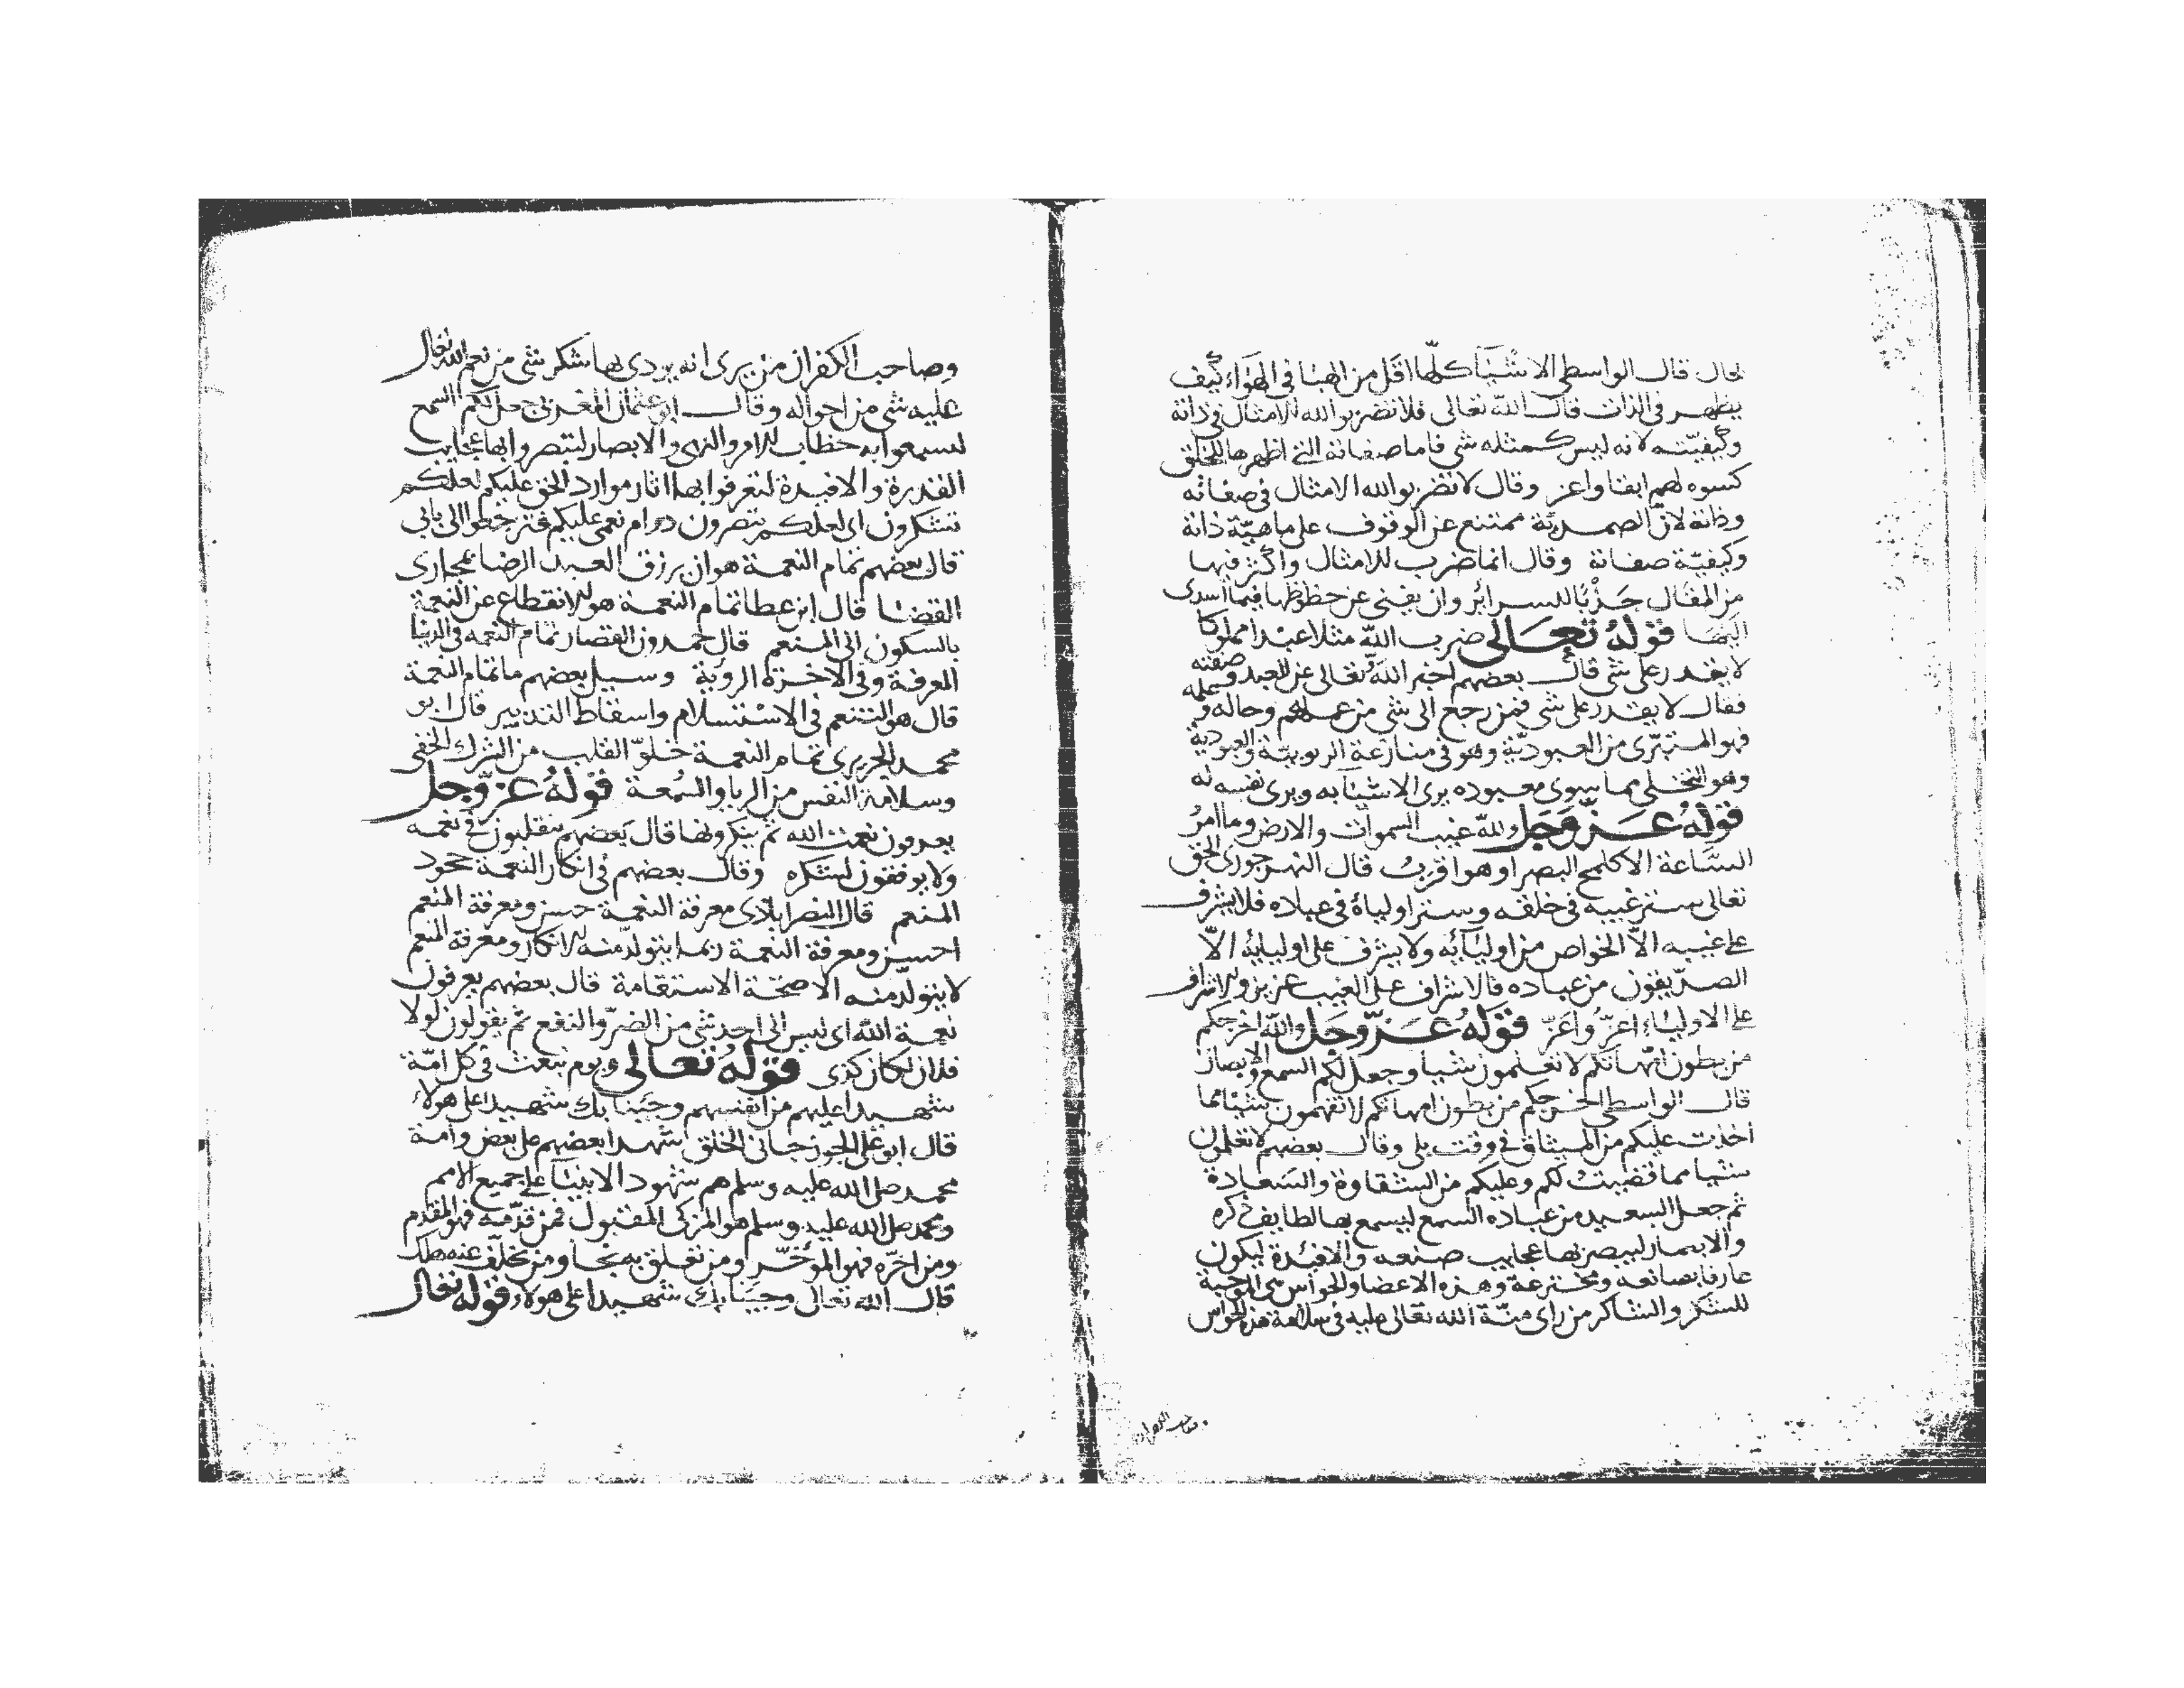 بحال قال الواسطي الاشيآ كلّها اقل من الهبا في الهواء كيف
يظهر في الذات قال الله تعالى فلا تضربوا لله الامثال في ذاته
وكيفيّته لانه ليس كمثله شي فاما صفاته التي اظهرها للخلق
كسوه لهم ابقا واعز وقال لا تضربوا لله الامثال في صفاته
وذاته لانّ الصمديّة ممتنع عن الوقوف على ماهيّة ذاته
وكيفيّة صفاته وقال انما ضرب الامثال واكثر فيها
من المقال جذبا للسراير وان يفنى عن حظوظها فيما اسدى
اليها قوله تعالى ضرب الله مثلا عبدا مملوكا
لا يقدر على شي قال بعضهم اخبر الله تعالى عن العبد وصفته
فقال لا يقدر على شي فمن رجع الى شي من عمله وحاله وعلمه
فهو المتبرّى من العبوديّة وهو في منازعة الربوبيّة والعبودية
وهو التخلي مما سوى معبوده يرى الاشيا به ويرى نفسه له
قوله عزّ وجل ولله غيب السموات والارض وما امر
السّاعة الا كلمح البصر او هو اقرب قال النهرجورى الحق
تعالى ستر غيبه في خلقه وستر اولياه في عباده فلا يشرف
على غيبه الا الخواص من اوليائه ولا يشرف على اوليايه الاّ
الصدّيقون من عباده فالاشراف على الغيب عزيز والاشراف
على الاولياء اعزّ واعزّ قوله عزّ وجل والله اخرجكم
من بطون امهاتكم لا تعلمون شيا وجعل لكم السمع والابصار
قال الواسطي اخرجكم من بطون امهاتكم لا تفهمون شيا مما
اخذت عليكم من الميثاق في وقت بلى وقال بعضهم لا تعلمون
شيا مما قضيت لكم وعليكم من الشقاوة والسّعادة
ثم جعل السعيد من عباده السمع ليسمع بها لطايف ذكره
والابصار ليبصر بها عجايب صنعه والافئدة ليكون
عارفا بصانعه ومخترعه وهذه الاعضا والحواس هي الموجبة
للشكر والشاكر من راى منّة الله تعالى عليه في سلامة هذه الحواس
وصاحب الكفران
وصاحب الكفران من يرى انه يودى بها شكر شي من نعم الله تعالى
عليه شي من احواله وقال ابو عثمان المغربي جعل لكم السمع
لتسمعوا به خطاب الامر والنهى والابصار لتبصروا بها عجايب
القدرة والافيدة لتعرفوا بها اثار موارد الحق عليكم لعلكم
تشكرون اى لعلكم تبصرون دوام نعمى عليكم فترجعوا الى بابي
قال بعضهم تمام النعمة هو ان يرزق العبد الرضا بمجارى
القضا قال ابن عطا تمام النعمة هو الانقطاع عن النعمة
بالسكون الى المنعم قال حمدون القصار تمام النعمه في الدنيا
المعرفة وفي الاخرة الروية وسيل بعضهم ما تمام النعمة
قال هو التنعم في الاستسلام واسقاط التدبير قال ابو
محمد الحريرى تمام النعمة خلوّ القلب من الشرك الخفي
وسلامة النفس من الريا والسّمعة قوله عزّ وجل
يعرفون نعمت الله ثم ينكرونها قال بعضهم يتقلبون في نعمه
ولا يوفقون لشكره وقال بعضهم في انكار النعمة جحود
المنعم قال النصراباذى معرفة النعمة حسن ومعرفة المنعم
احسن ومعرفة النعمة ربما يتولّد منه الانكار ومعرفة المنعم
لا يتولّد منه الا صحّة الاستقامة قال بعضهم يعرفون
نعمة الله اى ليس الى احد شي من الضرّ والنفع ثم يقولون لولا
فلان لكان كذى قوله تعالى ويوم نبعث في كل امّة
شهيدا عليهم من انفسهم وجينا بك شهيدا على هولاء
قال ابو على الجوزجاني الخلق شهدا بعضهم على بعض وامة
محمد صلى الله عليه وسلم هم شهود الانبيا على جميع الامم
ومحمد صلى الله عليه وسلم هو المزكى المقبول فمن قدّمه فهو المقدم
ومن اخرّه فهو المؤخّر ومن تعلق به نجا ومن تخلّف عنه هلك
قال الله تعالى وجينا بك شهيدا على هولاء قوله تعالى